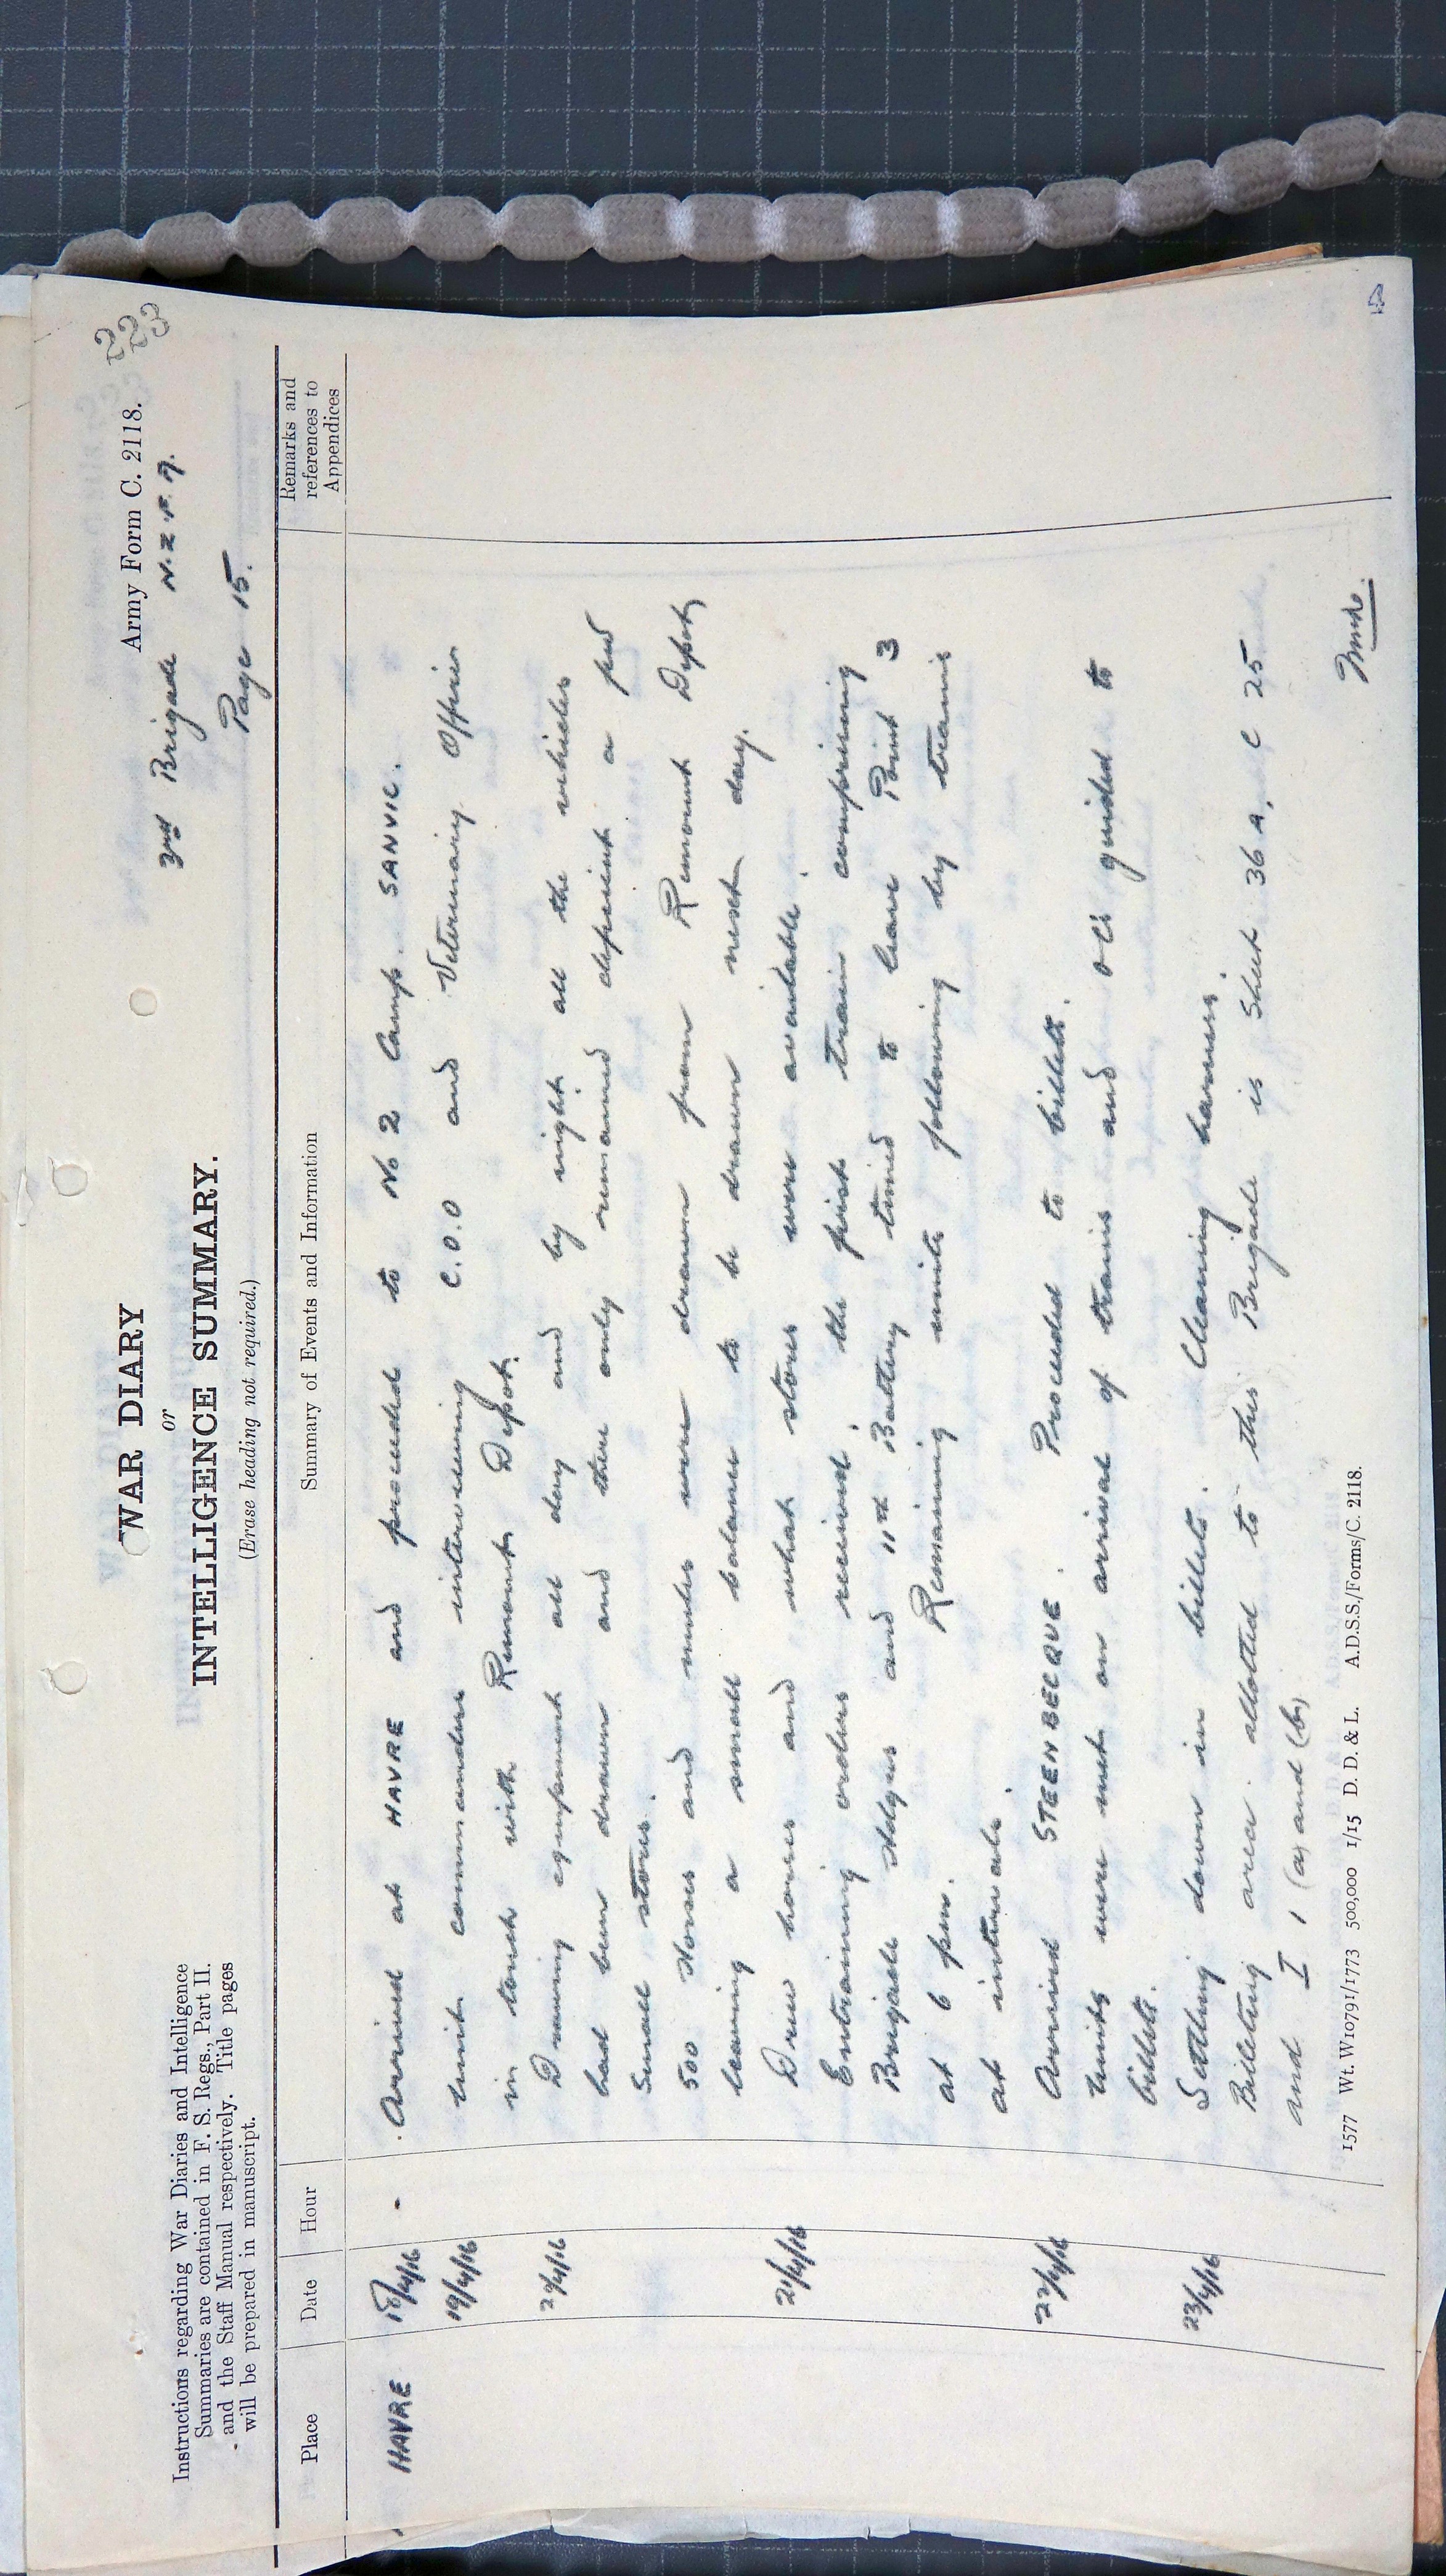 223
Army Form C. 2118.
3rd Brigade N.Z.F.A.
Page 15.
WAR DIARY
or
INTELLIGENCE SUMMARY.
(Erase heading not required.)
Instructions regarding War Diaries and Intelligence
Summaries are contained in F. S. Regs., Part II.
and the Staff Manual respectively. Title pages
will be prepared in manuscript.
Place Date Hour Summary of Events and Information Remarks and references to Appendices
HAVRE 18/4/16 - Arrived at HAVRE and proceeded to No 2 Camp. SANVIC.
19/4/16 Unit commanders interviewing C.O.O and Veterinary Officer
in touch with Remount Depot.
20/4/16 Drawing equipment all day and by night all the vehicles
had been drawn and there only remained deficient a few
Small stores.
500 Horses and mules were drawn from Remount Depot,
leaving a small balance to be drawn next day.
21/4/16 Drew horses and what stores were available.
Entraining orders received, the first train comprising
Brigade Hdqrs and 11th Battery timed to leave Point 3
at 6 pm. Remaining units following by trains
at intervals.
22/4/16 Arrived STEENBECQUE. Proceeded to billets.
Units were met on arrival of trains and guided to
billets.
23/4/16 Settling down in billets. Cleaning harness.
Billeting area allotted to this Brigade is Sheet 36A, C 25
and I 1 (a) and (b)
1577 Wt. W10791/1773 500,000 1/15 D. D. & L. A.D.S.S./Forms/C. 2118.